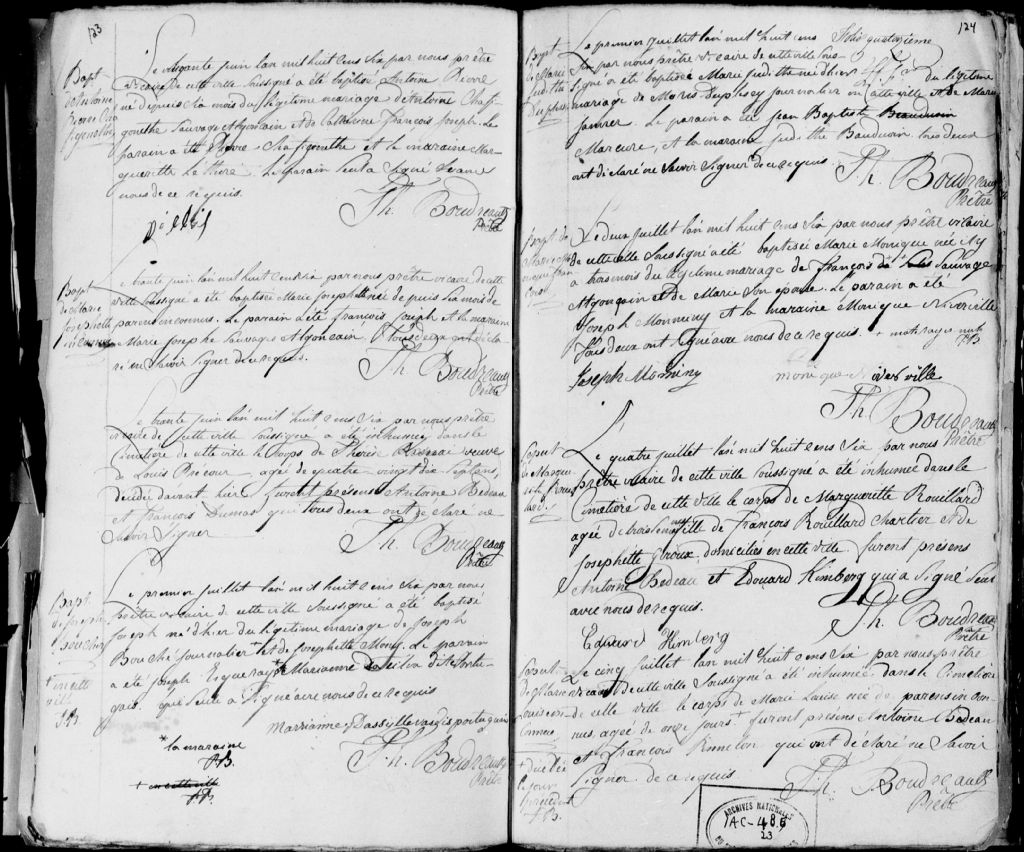 123
Bapt
d'Antoine
Pierre
Le trante juin lan mil huit cens six par nous prêtre
vicaire de cette ville sousigné a été baptisé Antoine Pierre
né depuis six mois du légitime mariage d'Antoine
sauvage Algonkain et de Catherine françois Joseph. Le
parain a été Pierre et la maraine Mar-
guerette Le parain seul a signé avec
nous de ce réquis.
Th. Boudreault
Prêtre
Bapt
de Marie
Josephette
inconnu
Le trante juin lan mil huit cens six par nous prêtre vicaire de cette
ville sousigné a été baptisée Marie Josephette née de puis six mois de
parens inconnus. Le parain a été françois Joseph et la maraine
Marie Josephe sauvages Algonkain tous deux ont décla-
ré ne savoir signer de ce requis.
Th. Boudreault
Prêtre
Le trante juin lan mil huit cens six par nous prêtre
vicaire de cette ville sousigné a été inhumé dans le
Cimetière de cette ville le corps de Therese veuve
de Louis Precour agée de quatre vingt dix sept ans,
décédée davant hier furent présens Antoine Bedeau
et françois Dumas qui tous deux ont déclaré ne
savoir signer
Th. Boudreault
Prêtre
Bapt.
de Joseph
Bouché
+ in cette
ville
TB.
Le premier juillet lan mil huit cens six par nous
prêtre vicaire de cette ville sousigné a été baptisé
Joseph né d'hier du légitime mariage de Joseph
Bouché journalier et de Josephette Mony. Le parain
a été Joseph * Marianne da silva dit Portu-
gais. qui seule a signé avec nous de ce requis
Marriainne Dassylle vandis portuguais
Th. Boudreault
Prêtre
* la maraine
TB.
+ en cette ville
TB.
124
Bapt
de Marie
Judithe
Duplessy
Le premier juillet lan mil huit cens
six par nous prêtre vicaire de cette ville sous-
signé a été baptisée Marie Judithe née d'hier du légitime
mariage de Moris Duplessy journalier in cette ville et de Marie
Janvier. Le parain a été Jean Baptiste Beaudouin
Marcure, et la maraine Judithe Baudouin tous deux
ont déclaré ne savoir signer de ce requis.
Th. Boudreault
Prêtre
Bapt. de
Marie Mo-
nique fran-
cois
Le deux juillet lan mil huit cens six par nous prêtre vicaire
de cette ville sousigné a été baptisée Marie Monique née il y
a trois mois du légitime mariage de françois sauvage
Algonquin et de Marie son epouse. Le parain a été
Joseph Monminy et la maraine Monique Niverville
Tous deux ont signé avec nous de ce requis. + mots rayés nuls
TB
Joseph Monminy
monique niverville
Th. Boudreault
Prêtre
Sepult
de Margue-
rite Rouil-
lard.
Le quatre juillet lan mil huit cens six par nous
prêtre vicaire de cette ville sousigné a été inhumée dans le
Cimetière de cette ville le corps de Marguerette Rouillard
agée de trois sem. fille de françois Rouillard Chartier et de
Josephette Giroux domiciliés en cette ville. furent présens
Antoine Bedeau et Edouard Kimberg qui a signé seul
avec nous de ce requis.
Edward Himberg
Th. Boudreault
Prêtre
Sepult
de Marie
Louise in-
connue
+ décédée
le jour
precedent
TB.
Le cinq juillet lan mil huit cens six par nous prêtre
vicaire de cette ville sousigné a été inhumée dans le Cimetière
de cette ville le corps de Marie Louise née de parens incon-
nus, agée de onze jours + furent présens Antoine Badeau
et François qui ont déclaré ne savoir
signer de ce requis
Th. Boudreault
Prêtre
ARCHIVES NATIONALES
AC-486
23